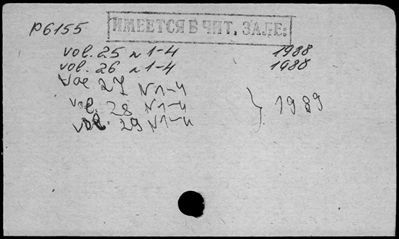 P6155
ИМЕЕТСЯ В ЧИТ. ЗАЛЕ:
vol. 25 n 1-4 1988
vol. 26 n 1-4 1988
vol 27 N 1-4
vol. 28 N 1-4 } 1989
vol. 29 N 1-4